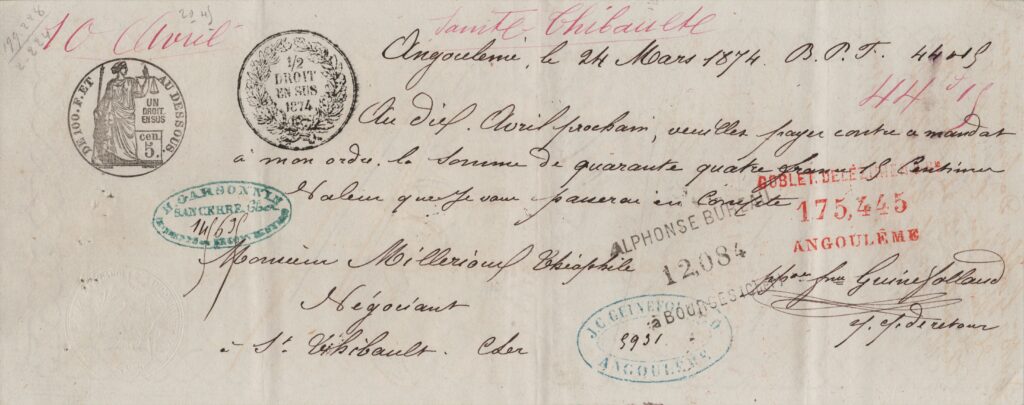 10 Avril
Sainte Thibaulte
Angoulême, le 24 Mars 1874. B. P. F. 44.15
44 f 15
DE 100. F. ET AU DESSOUS.
UN
DROIT
EN SUS
cen.
5.
1/2
DROIT
EN SUS
1874
Au dix Avril prochain, veuillez payer contre ce mandat
à mon ordre la somme de quarante quatre francs 15 Centimes
Valeur que je vous passerai en Compte
H. GARSONNIN
SANCERRE
14635
GOBLET, DELE
175,445
ANGOULÊME
ALPHONSE BU
12,084
à BOURGES
Monsieur Millerioux Théophile
Négociant
à St Thibault. Cher
J. C. GUINEFOLLAUD
5931
ANGOULÊME
Guinefollaud